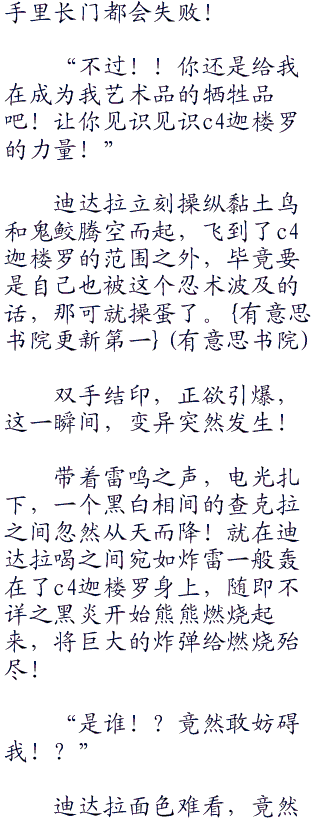 手里长门都会失败！
“不过！！你还是给我
在成为我艺术品的牺牲品
吧！让你见识见识c4迦楼罗
的力量！”
迪达拉立刻操纵黏土鸟
和鬼鲛腾空而起，飞到了c4
迦楼罗的范围之外，毕竟要
是自己也被这个忍术波及的
话，那可就操蛋了。{有意思
书院更新第一}(有意思书院)
双手结印，正欲引爆，
这一瞬间，变异突然发生！
带着雷鸣之声，电光扎
下，一个黑白相间的查克拉
之间忽然从天而降！就在迪
达拉喝之间宛如炸雷一般轰
在了c4迦楼罗身上，随即不
详之黑炎开始熊熊燃烧起
来，将巨大的炸弹给燃烧殆
尽！
“是谁！？竟然敢妨碍
我！？”
迪达拉面色难看，竟然